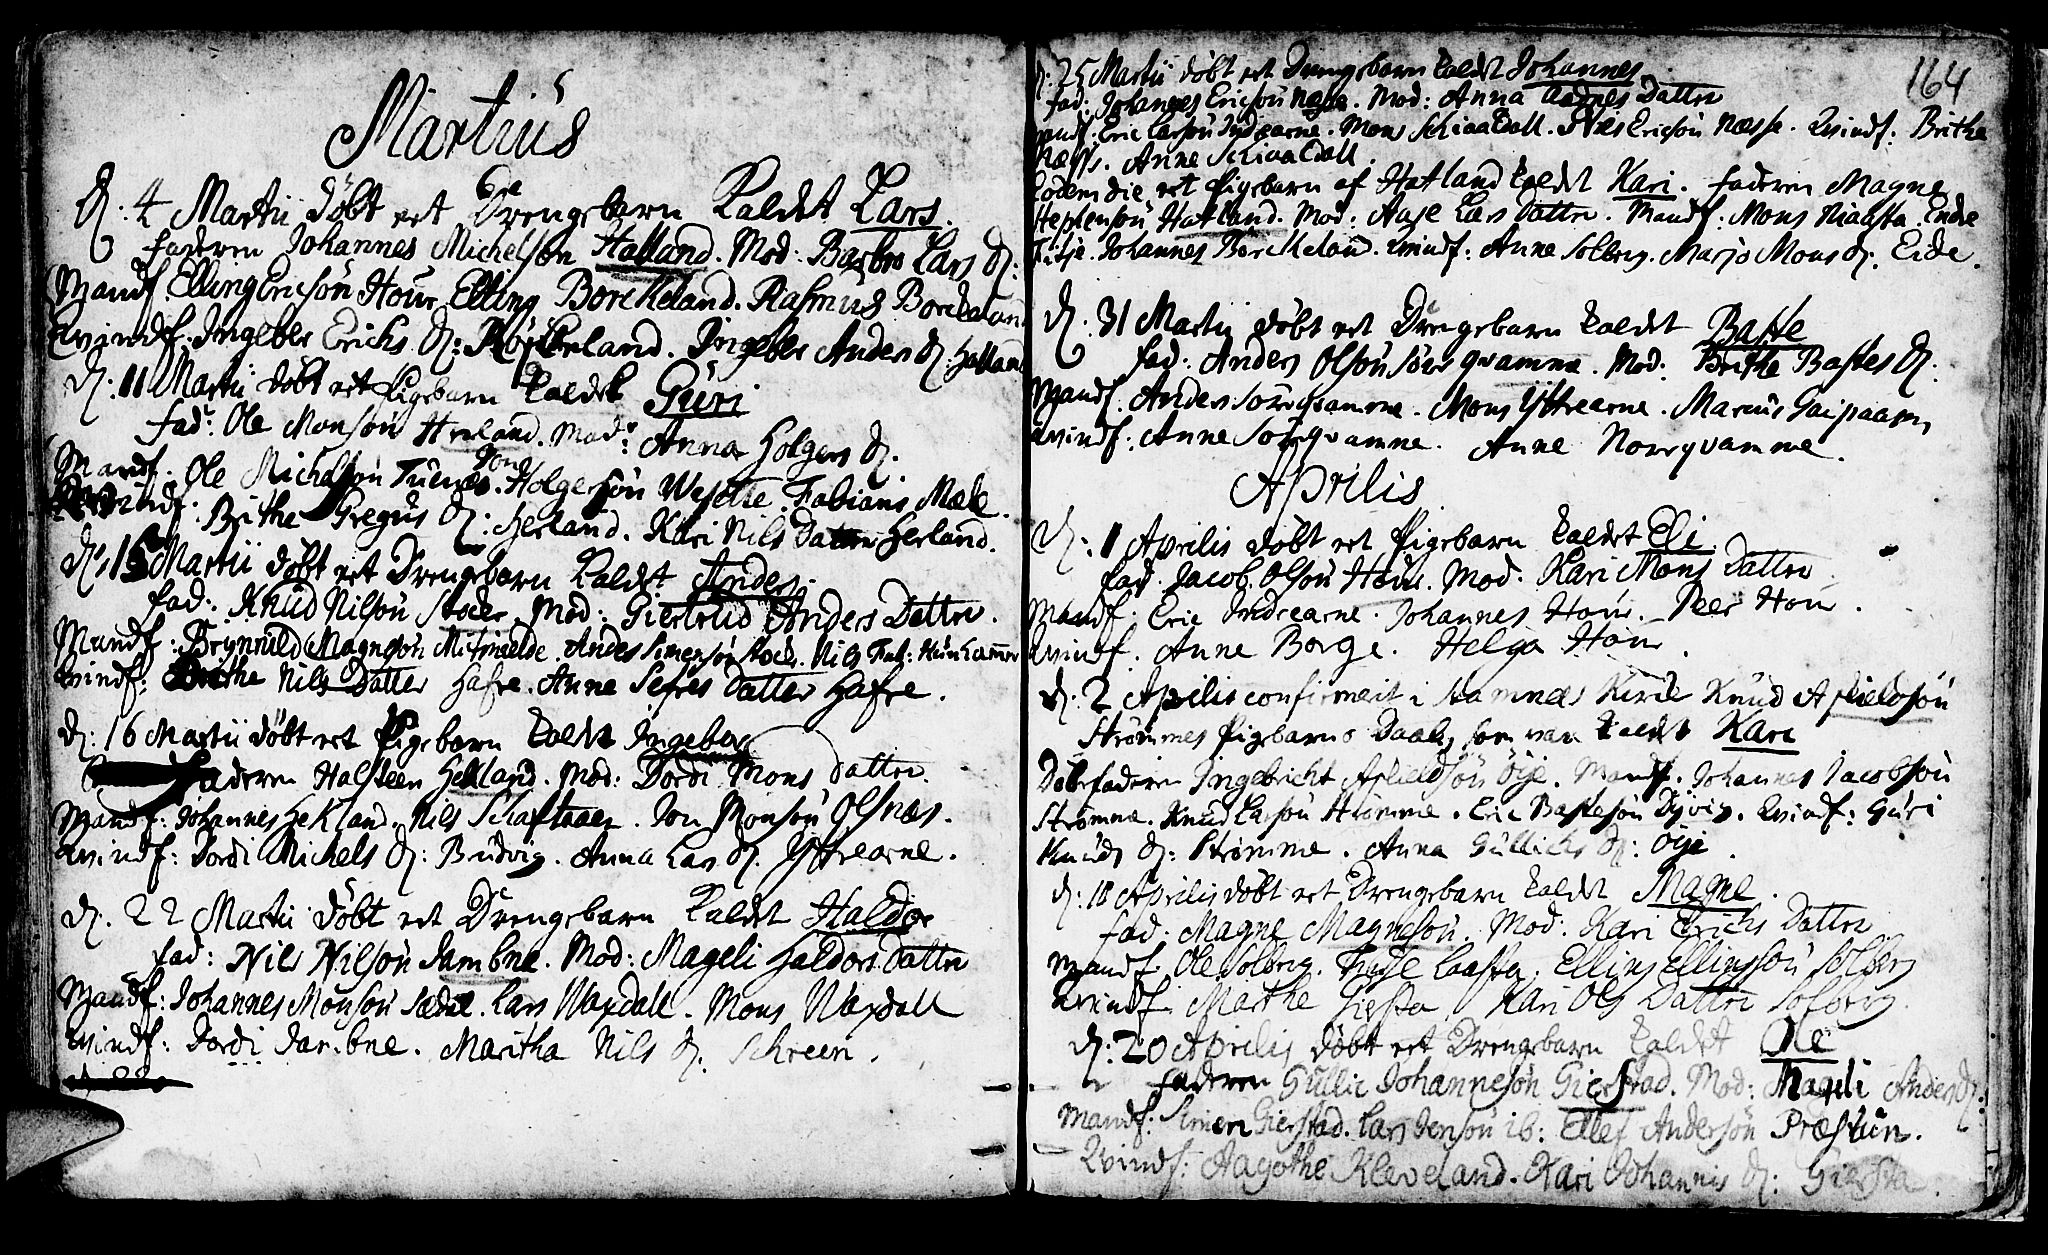 Martius
D: 4 Martii döbt eet Drengebarn kaldet Lars.
faderen Johannes Michelsön Hatland. Mod: Barbro Lars D:
Mandf. Elling Ericsön Hour Elling Borckeland. Rasmus Borckeland
Qvindf: Ingebor Erichs D: Ingebor Anders D: Hatland
D: 11 Martii döbt eet Pigebarn kaldet Guri
fad: Ole Monsön Herland. Mod: Anna Holgers D.
Mandf. Ole Michelsön Tuenæs. Jon Holgersön Wefette. Fabians Mæle.
Qvindf. Brithe Gregus D: Herland. Kari Nils Datter Herland.
D. 15 Martii döbt eet Drengebarn kaldet Anders.
fad: Knud Nilsön Stocke. Mod: Giertrud Anders Datter.
Mandf: Brynnild Magnesön Anders Simensön Stocke. Nils
Qvindf: Brithe Nils Datter Hafre. Anne Sefres Datter Hafre.
D: 16 Martii döbt eet Pigebarn kaldet Ingebor
Faderen Halsteen Hekland. Mod: Dordi Mons Datter.
Mandf: Johannes Hekland. Nils Schaftaaer. Jon Monsön Olsnæs.
Qvindf: Dordi Michels D: Budvig. Anna Lars D. Yttrearne.
D. 22 Martii döbt eet Drengebarn kaldet Haldor
fad: Nils Nilsön Dambne. Mod: Mageli Haldors Datter
Mandf: Johannes Monsön Sædal. Lars Waxdall. Mons Waxdall
Qvindf: Dordi Dambne. Maritha Nils D. Schreen.
164
D: 25 Martii döbt eet Drengebarn kaldet Johannes
fad: Johannes Ericsön Næsse. Mod: Anna Aadnes Datter
Mandf. Eric Larsön Indrearne. Mons Schiaaldall. Ericsön Næsse. Qvindf: Brithe
Næsse. Anne Schiaaldall.
Eodem die eet Pigebarn af Hatland kaldet Kari. faderen Magne
Stephensön Hatland. Mod: Aase Lars Datter. Mandf: Mons Endre
Titje. Johannes Borckeland. Qvindf: Anne Solberg. Marjo Mons D. Eide.
D: 31 Martii döbt eet Drengebarn kaldet Baste
fad: Anders Olsön Söreqvamme. Mod: Brithe Bastes D:
Mandf. Anders Söreqvamme. Mons Yttrearne. Marcus Gaupaasen
Qvindf: Anne Söreqvamme. Anne Noreqvamme.
Aprilis
D: 1 Aprilis döbt eet Pigebarn kaldet Eli.
fad. Jacob Olsön Hour. Mod. Kari Mons Datter
Mandf: Eric Indrearne. Johannes Hour. Peer Hour.
Qvindf. Anne Borge. Helga Hour.
D: 2 Aprilis confirmeret i Stamnes Kirke Knud Aslieldsön
Strömmes Pigebarns Daab, som var kaldet Kari
Döbefaderen Ingebricht Aslieldsön Öje. Mandf. Johannes Jacobsön
Strömme. Knud Larsön Strömme. Eric Bastesön Dyvig. Qvindf: Guri
Knuds D: Strömme. Anna Gullichs D: Öje.
D: 18 Aprilis döbt eet Drengebarn kaldet Magne.
fad: Magne Magnesön. Mod: Kari Erichs Datter
Mandf. Ole Solberg. Elling Ellingsön Solberg
Qvindf. Marthe Kari Ols Datter Solberg.
D: 20 Aprilis döbt eet Drengebarn kaldet Ole
faderen Gullic Johannesön Gierstad. Mod: Mageli Anders D:
Mandf: Simen Gierstad. Lars Jensön ib: Ellef Andersön Præstun.
Qvindf: Aagothe Kleveland. Kari Johannis D: Giersta.